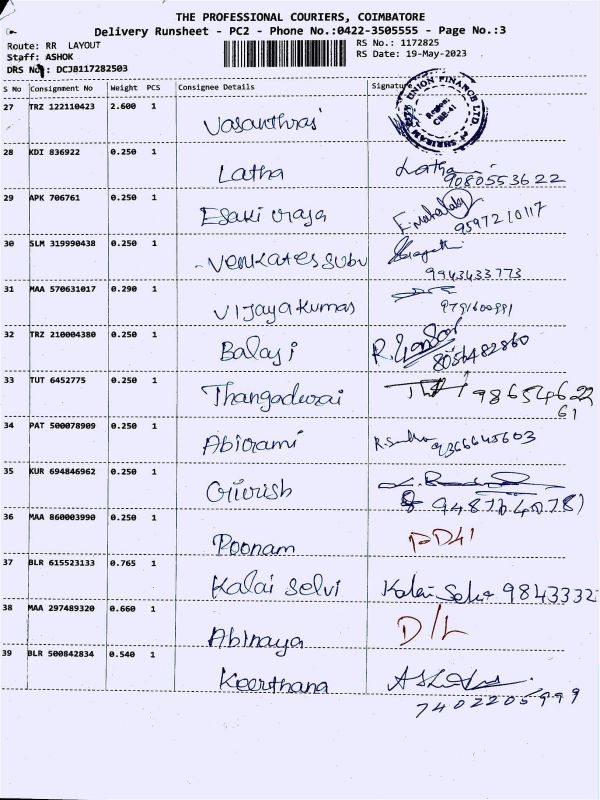 THE PROFESSIONAL COURIERS, COIMBATORE
Delivery Runsheet - PC2 - Phone No.:0422-3505555 - Page No.:3
Route: RR LAYOUT
RS No.: 1172825
Staff: ASHOK
RS Date: 19-May-2023
DRS No: DCJB117282503
S No Consignment No Weight PCS Consignee Details Signature
27 TRZ 122110423 2.600 1 Vasanthraj
SHRIRAM CITY UNION FINANCE LTD.
Region:
CBE-41
28 KDI 836922 0.250 1 Latha Latha
9080553622
29 APK 706761 0.250 1 Esaki raja
9597210117
30 SLM 319990438 0.250 1 Venkatessubu
9943433773
31 MAA 570631017 0.290 1 Vijayakumar
9791600991
32 TRZ 210004380 0.250 1 Balaji
8056482860
33 TUT 6452775 0.250 1 Thangadurai 98654622
61
34 PAT 500078909 0.250 1 Abirami 9366645603
35 KUR 694846962 0.250 1 Girish
36 MAA 860003990 0.250 1 Poonam
37 BLR 615523133 0.765 1 Kalai selvi Kalai Selvi 9843332
38 MAA 297489320 0.660 1 Abinaya D/L
39 BLR 500842834 0.540 1 Keerthana
7402205999